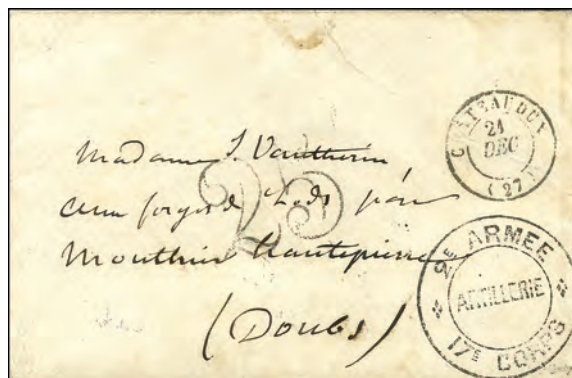 CHATEAUDUN
21
DEC
(27)
Madame J. Vautherin
aux forges de Lods par
25
Mouthier Hautepierre
(Doubs)
2E ARMEE
ARTILLERIE
17E CORPS